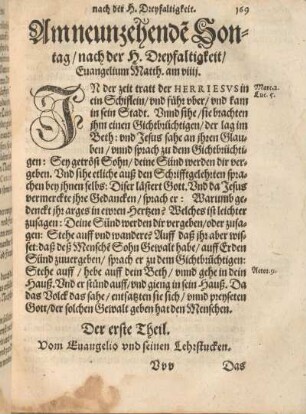 nach der H. Dreyfaltigkeit. 169
Am neunzehendē Son-
tag / nach der H. Dreyfaltigkeit /
Euangelium Matth. am viiij.
IN der zeit tratt der HERR IESVS in
ein Schifflein / vnd fuhr vber / vnd kam
in sein Statt. Vnnd sihe / sie brachten
jhm einen Gichtbrüchtigen / der lag im
Beth: vnd Jesus sahe an jhren Glau-
ben / vnnd sprach zu dem Gichtbrüchti-
gen: Sey getröst Sohn / deine Sünd werden dir ver-
geben. Vnd sihe etliche auß den Schrifftgelehrten spra-
chen bey jhnen selbs: Diser lästert Gott. Vnd da Jesus
vermerckte jhre Gedancken / sprach er: Warumb ge-
denckt jhr arges in ewren Hertzen? Welches ist leichter
zusagen: Deine Sünd werden dir vergeben / oder zusa-
gen: Stehe auff vnnd wandere? Auff daß jhr aber wis-
set: daß deß Menschē Sohn Gewalt habe / auff Erden
Sünd zuuergeben / sprach er zu dem Gichtbrüchtigen:
Stehe auff / hebe auff dein Beth / vnnd gehe in dein
Hauß. Vnd er stůnd auff / vnd gieng in sein Hauß. Da
das Volck das sahe / entsatzten sie sich / vnnd preyseten
Gott / der solchen Gewalt geben hat den Menschen.
Marc. 2.
Luc. 5.
Actor. 9.
Der erste Theil.
Vom Euangelio vnd seinen Lehrstucken.
Vvv Das